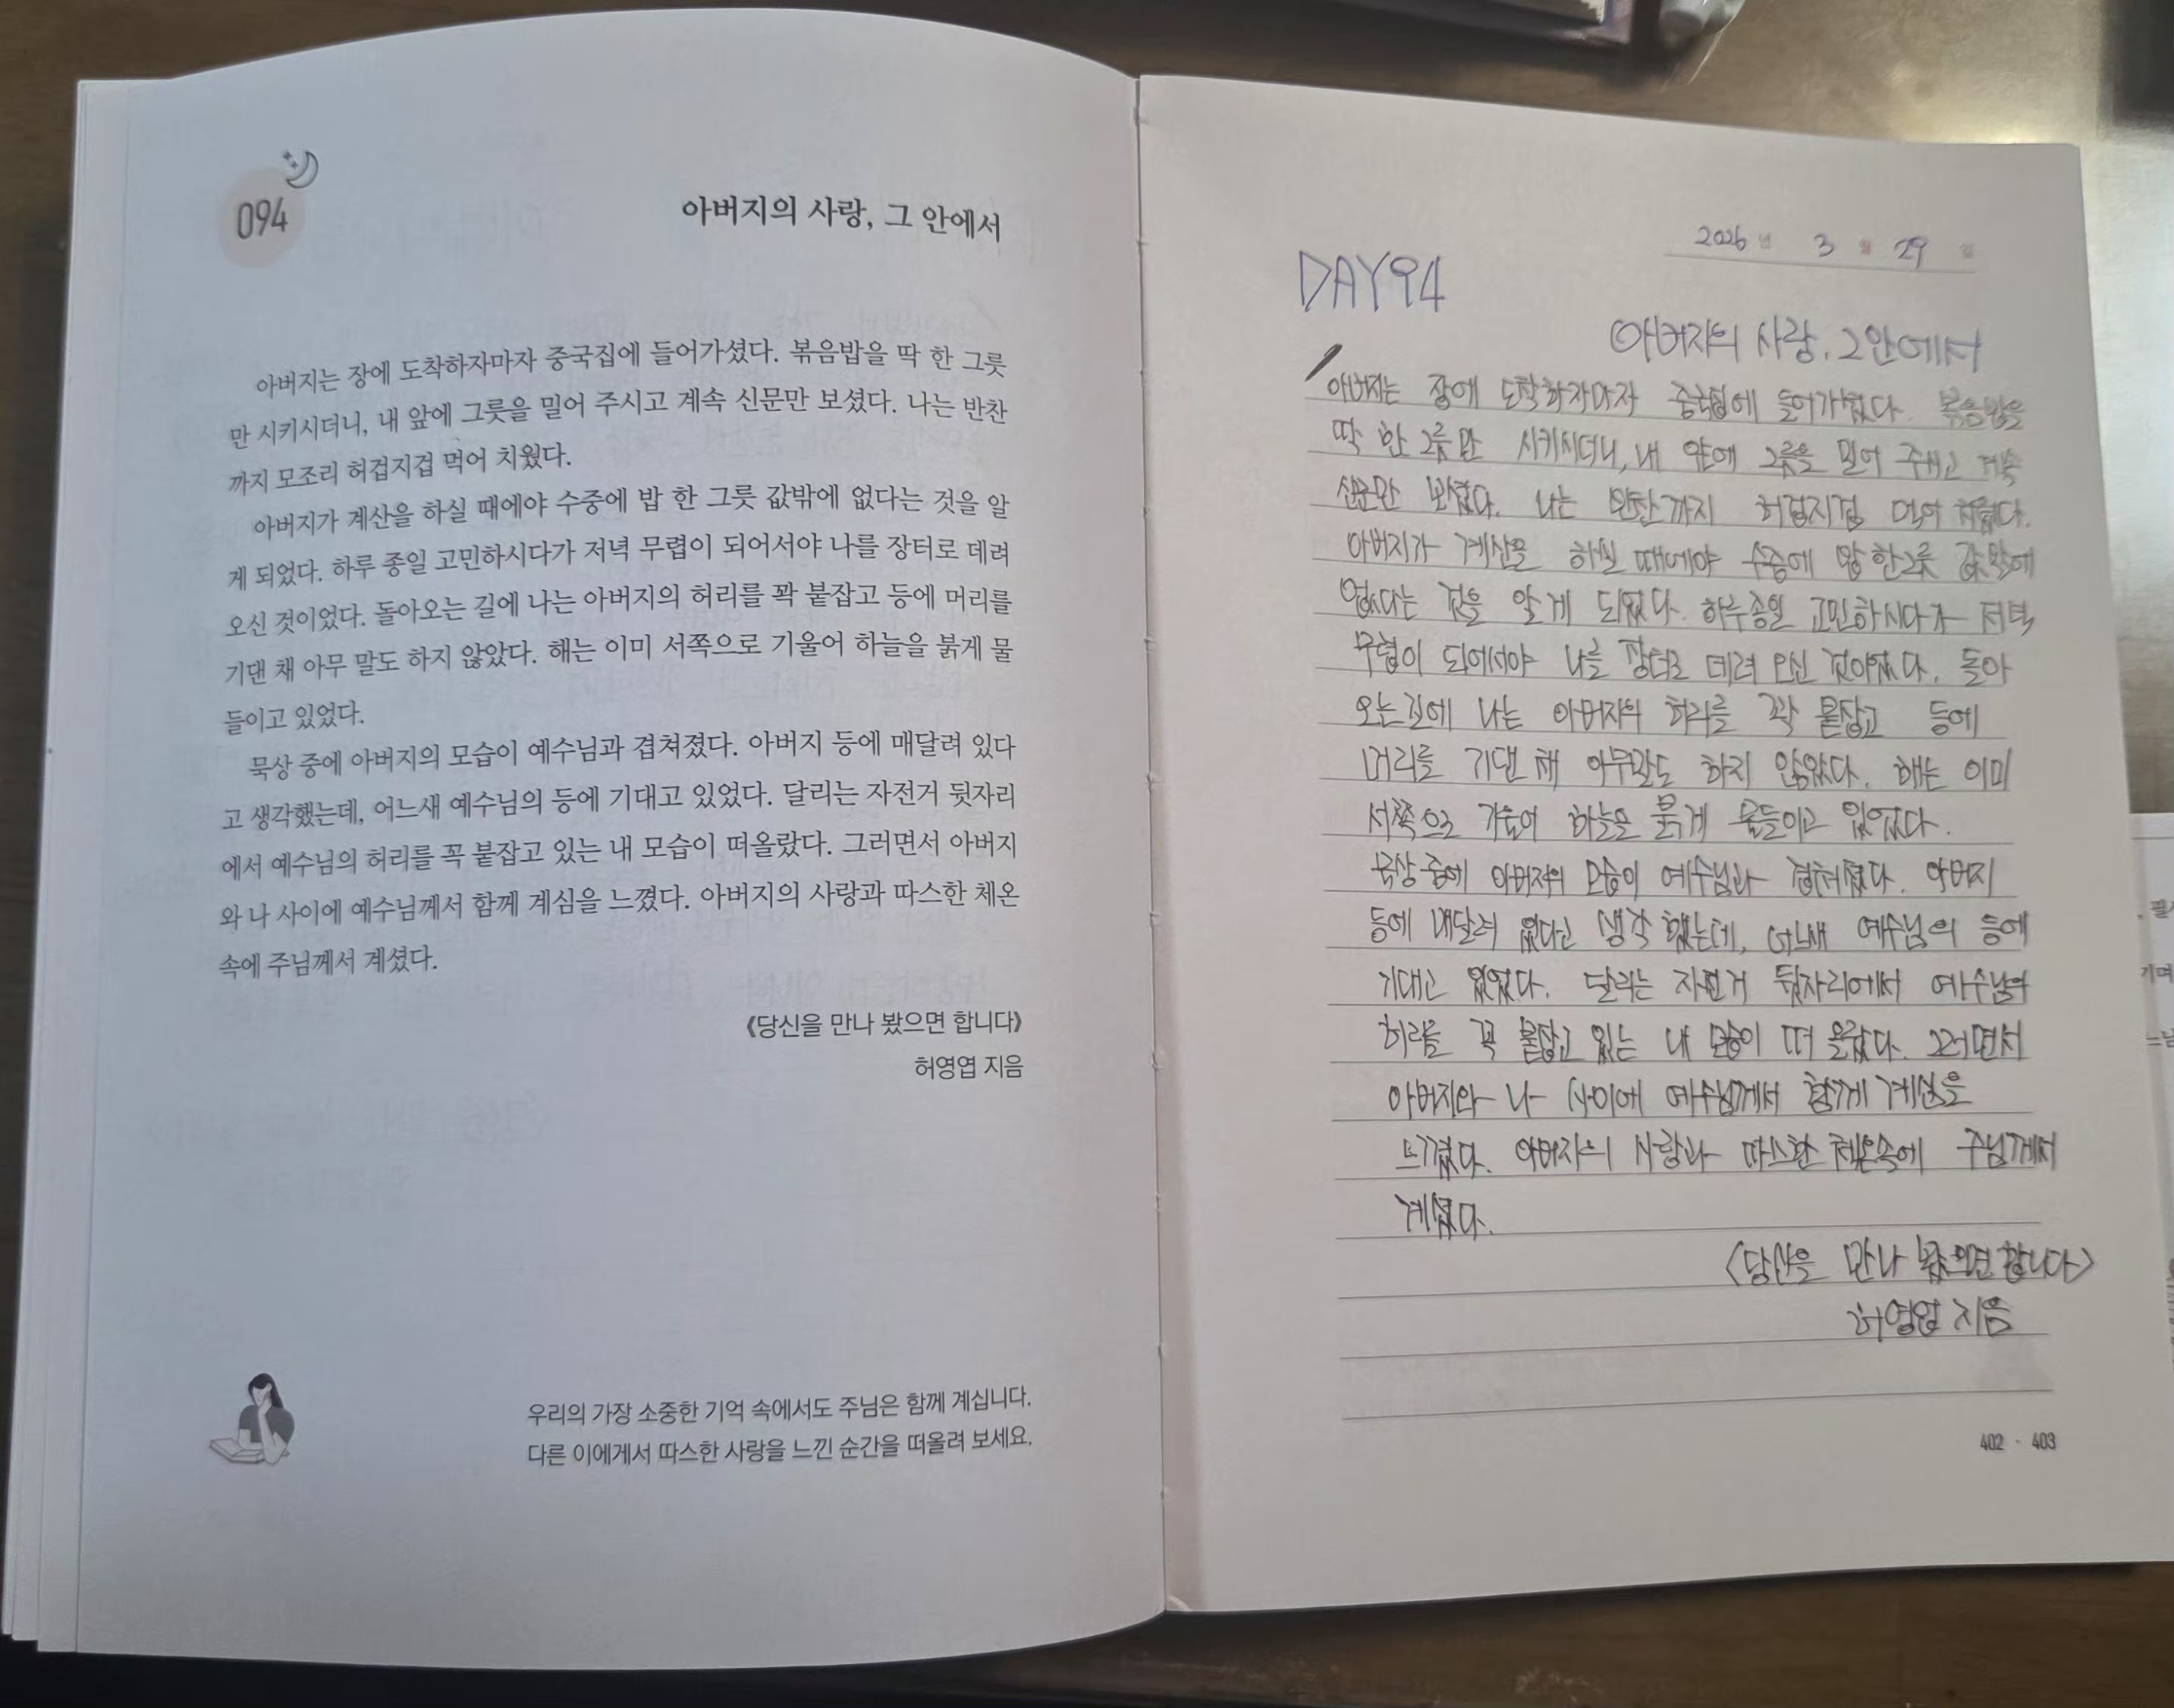 094
아버지의 사랑, 그 안에서
아버지는 장에 도착하자마자 중국집에 들어가셨다. 볶음밥을 딱 한 그릇
만 시키시더니, 내 앞에 그릇을 밀어 주시고 계속 신문만 보셨다. 나는 반찬
까지 모조리 허겁지겁 먹어 치웠다.
아버지가 계산을 하실 때에야 수중에 밥 한 그릇 값밖에 없다는 것을 알
게 되었다. 하루 종일 고민하시다가 저녁 무렵이 되어서야 나를 장터로 데려
오신 것이었다. 돌아오는 길에 나는 아버지의 허리를 꽉 붙잡고 등에 머리를
기댄 채 아무 말도 하지 않았다. 해는 이미 서쪽으로 기울어 하늘을 붉게 물
들이고 있었다.
묵상 중에 아버지의 모습이 예수님과 겹쳐졌다. 아버지 등에 매달려 있다
고 생각했는데, 어느새 예수님의 등에 기대고 있었다. 달리는 자전거 뒷자리
에서 예수님의 허리를 꼭 붙잡고 있는 내 모습이 떠올랐다. 그러면서 아버지
와 나 사이에 예수님께서 함께 계심을 느꼈다. 아버지의 사랑과 따스한 체온
속에 주님께서 계셨다.
《당신을 만나 봤으면 합니다》
허영엽 지음
우리의 가장 소중한 기억 속에서도 주님은 함께 계십니다.
다른 이에게서 따스한 사랑을 느낀 순간을 떠올려 보세요.
2026년 3월 29일
DAY94
아버지의 사랑, 그 안에서
아버지는 장에 도착하자마자 중국집에 들어가셨다. 볶음밥을
딱 한 그릇만 시키시더니, 내 앞에 그릇을 밀어 주시고 계속
신문만 보셨다. 나는 반찬까지 허겁지겁 먹어 치웠다.
아버지가 계산을 하실 때에야 수중에 밥 한그릇 값밖에
없다는 것을 알게 되었다. 하루종일 고민하시다가 저녁
무렵이 되어서야 나를 장터로 데려 오신 것이었다. 돌아
오는길에 나는 아버지의 허리를 꽉 붙잡고 등에
머리를 기댄 채 아무말도 하지 않았다. 해는 이미
서쪽으로 기울어 하늘을 붉게 물들이고 있었다.
묵상 중에 아버지의 모습이 예수님과 겹쳐졌다. 아버지
등에 매달려 있다고 생각했는데, 어느새 예수님의 등에
기대고 있었다. 달리는 자전거 뒷자리에서 예수님의
허리를 꼭 붙잡고 있는 내 모습이 떠 올랐다. 그러면서
아버지와 나 사이에 예수님께서 함께 계심을
느꼈다. 아버지의 사랑과 따스한 체온속에 주님께서
계셨다.
<당신을 만나 봤으면 합니다>
허영엽 지음
402 · 403